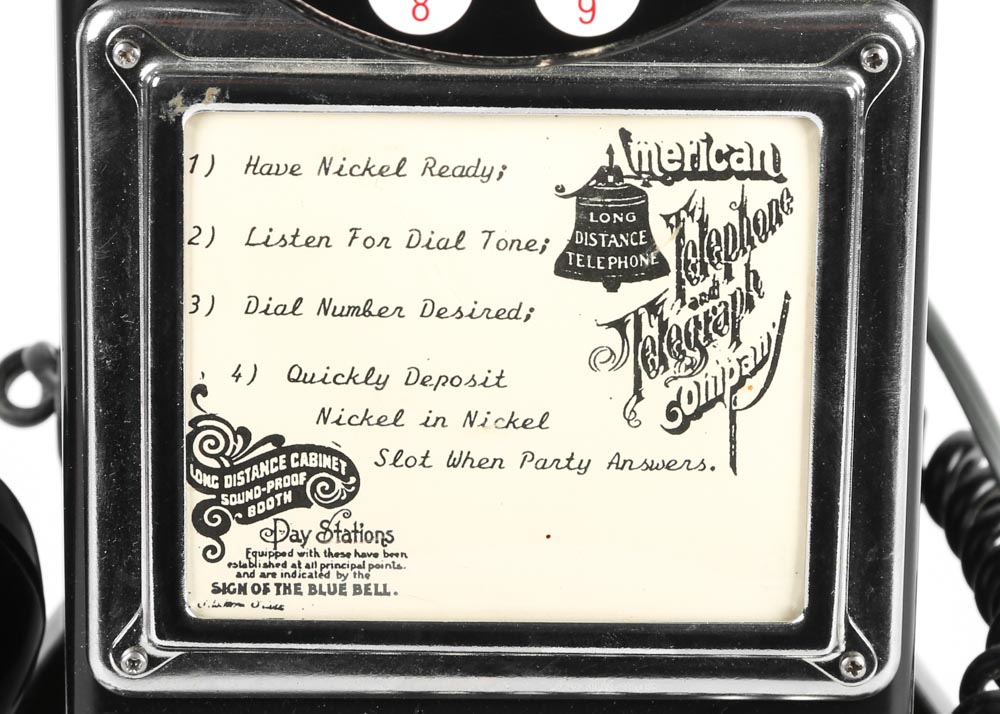 8 9
1) Have Nickel Ready;
2) Listen For Dial Tone;
3) Dial Number Desired;
4) Quickly Deposit
Nickel in Nickel
Slot When Party Answers.
American
Telephone
and
Telegraph
Company
LONG
DISTANCE
TELEPHONE
LONG DISTANCE CABINET
SOUND-PROOF
BOOTH
Pay Stations
Equipped with these have been
established at all principal points.
and are indicated by the
SIGN OF THE BLUE BELL.